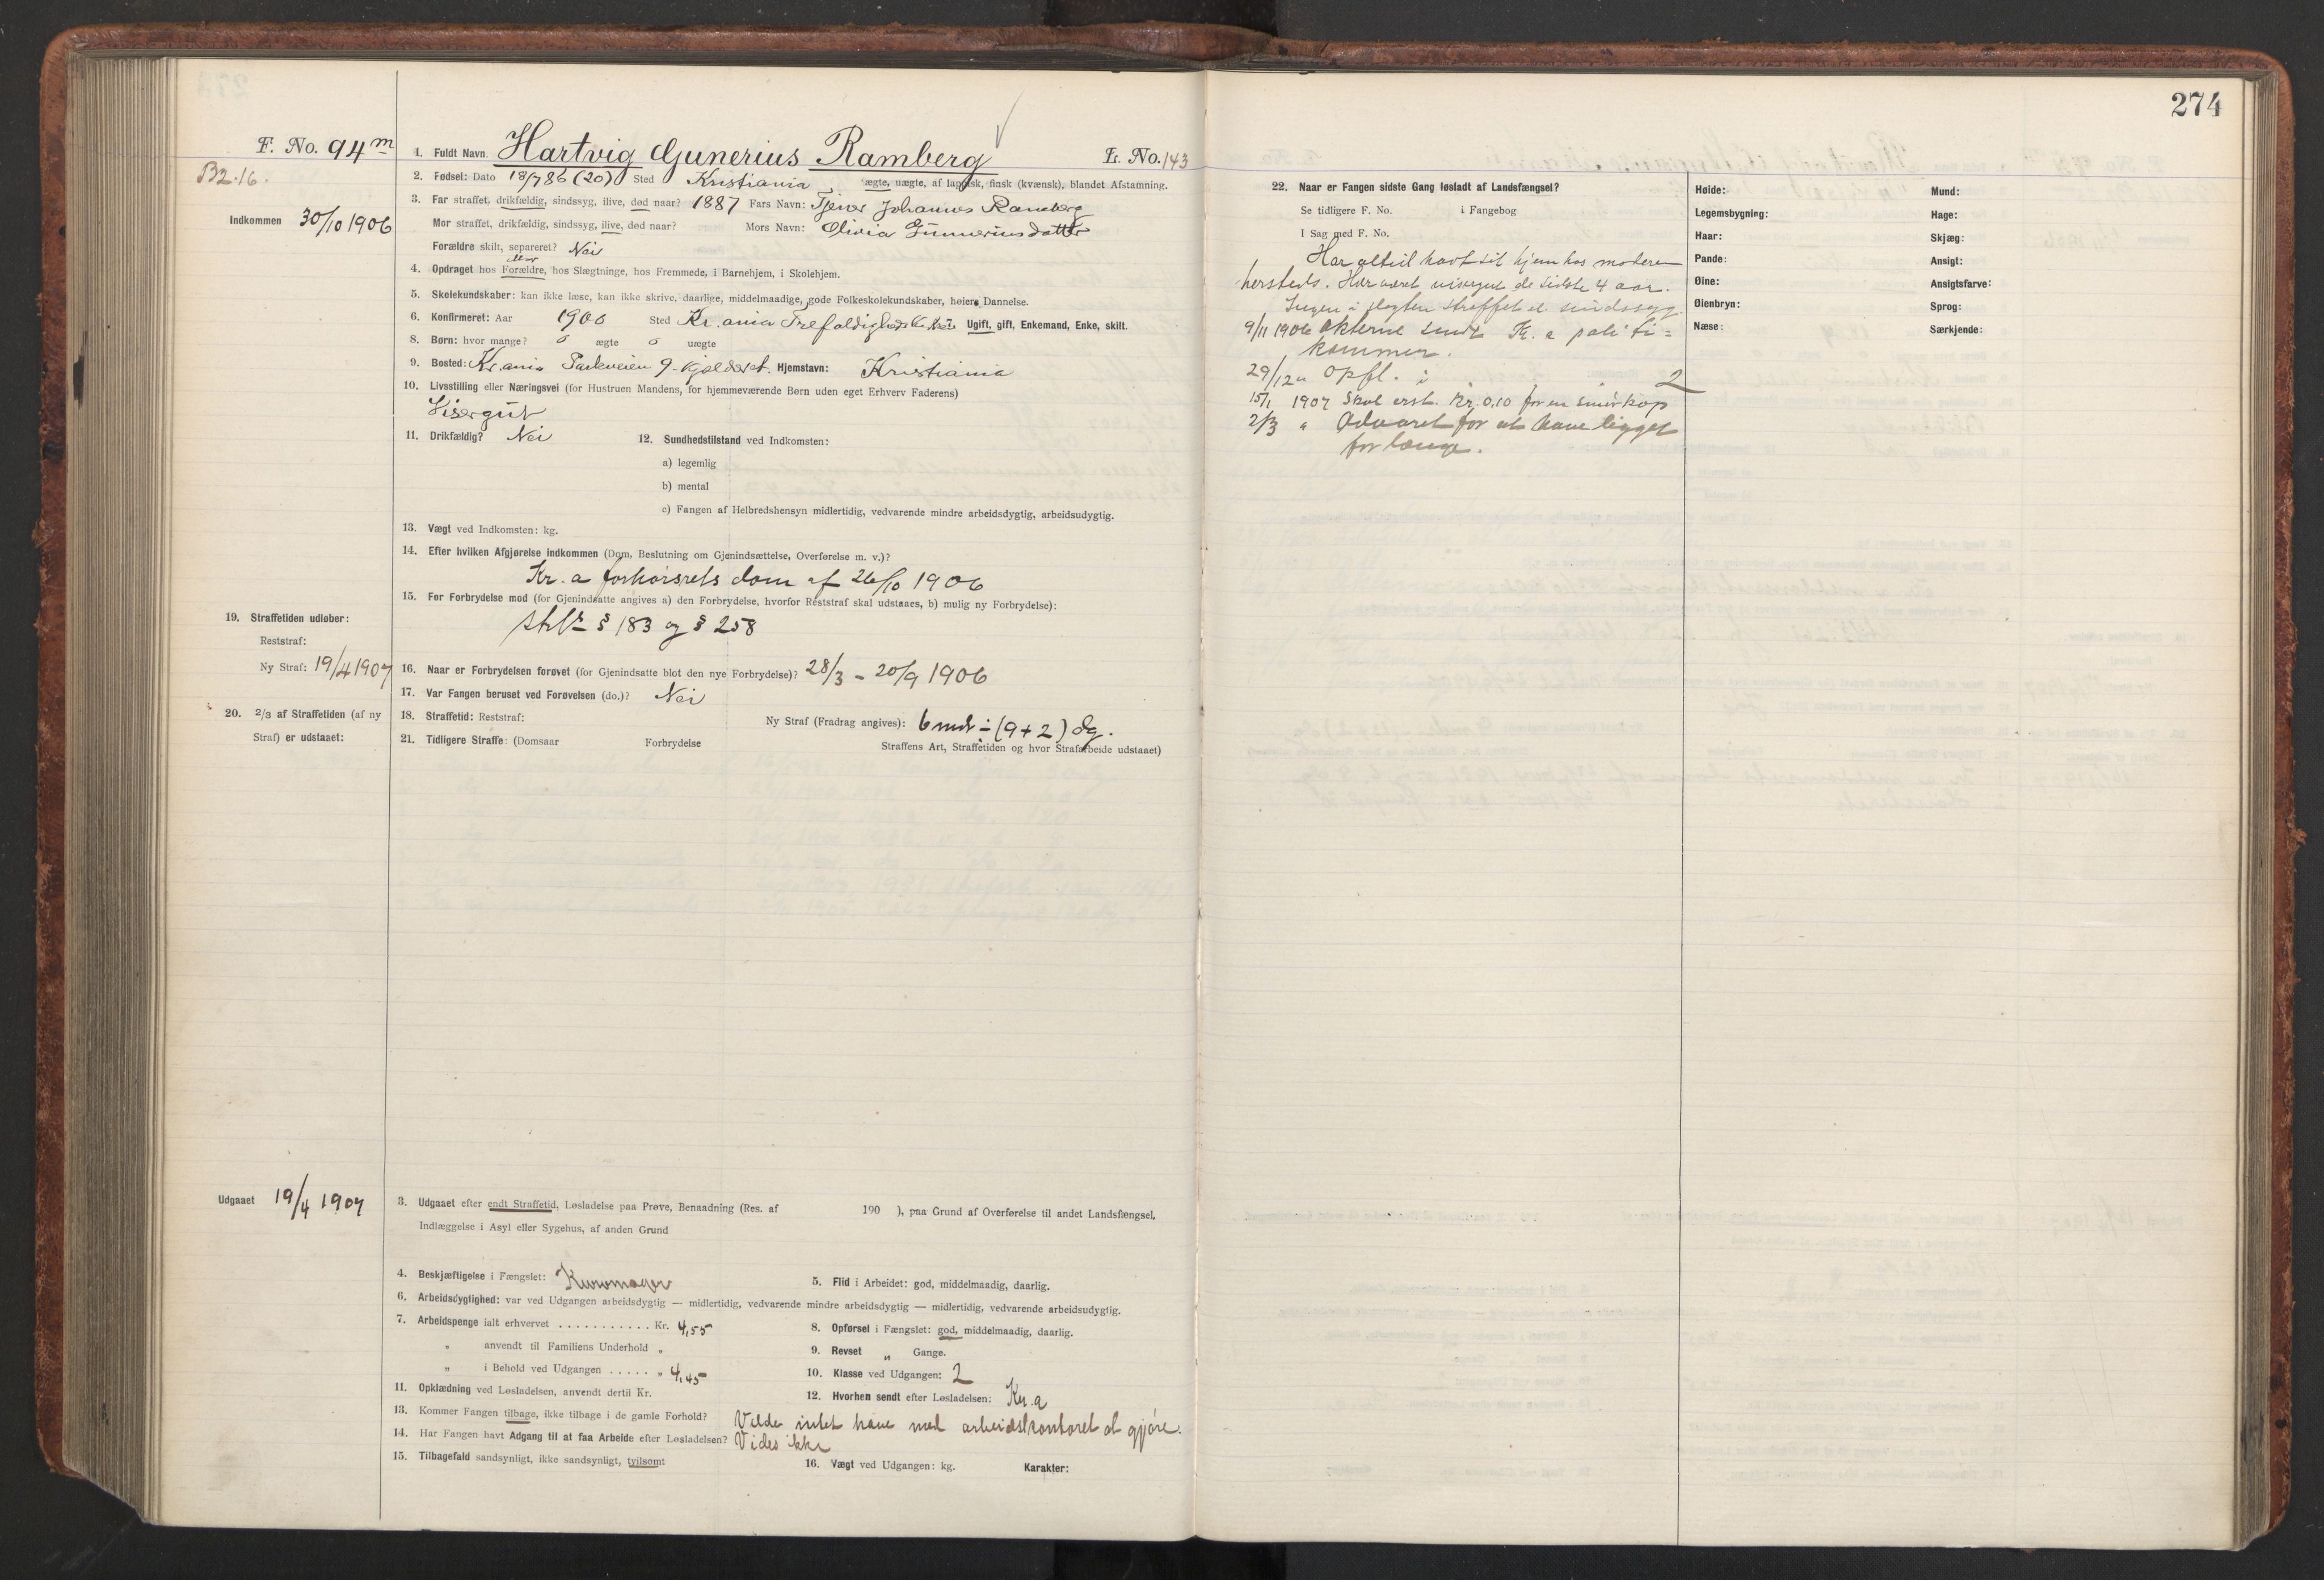 F. No. 94 m
B2.16.
Indkommen 30/10 1906
1. Fuldt Navn. Hartvig Gunerius Ramberg L. No. 143
2. Fødsel: Dato 18/7 86 (20) Sted Kristiania ægte, uægte, af lappisk, finsk (kvænsk), blandet Afstamning.
3. Far straffet, drikfældig, sindssyg, ilive, død naar? 1887 Fars Navn: Tjener Johannes Ramberg
Mor straffet, drikfældig, sindssyg, ilive, død naar? Mors Navn: Olivia Gunneriusdatter
Forældre skilt, separeret? Nei
4. Opdraget hos Forældre, hos Slægtninge, hos Fremmede, i Barnehjem, i Skolehjem.
5. Skolekundskaber: kan ikke læse, kan ikke skrive, daarlige, middelmaadige, gode Folkeskolekundskaber, høiere Dannelse.
6. Konfirmeret: Aar 1900 Sted Kr.ania Trefoldighedskirke Ugift, gift, Enkemand, Enke, skilt.
8. Børn: hvor mange? 0 ægte 0 uægte
9. Bosted: Kr.ania Parkveien 9. Kjælderet. Hjemstavn: Kristiania
10. Livsstilling eller Næringsvei (for Hustruen Mandens, for hjemmeværende Børn uden eget Erhverv Faderens)
Visergut
11. Drikfældig? Nei 12. Sundhedstilstand ved Indkomsten:
a) legemlig
b) mental
c) Fangen af Helbredshensyn midlertidig, vedvarende mindre arbeidsdygtig, arbeidsudygtig.
13. Vægt ved Indkomsten: kg.
14. Efter hvilken Afgjørelse indkommen (Dom, Beslutning om Gjenindsættelse, Overførelse m. v.)?
Kr.a forhørsrets dom af 26/10 1906
15. For Forbrydelse mod (for Gjenindsatte angives a) den Forbrydelse, hvorfor Reststraf skal udstaaes, b) mulig ny Forbrydelse):
§ 183 og § 258
19. Straffetiden udløber:
Reststraf:
Ny Straf: 19/4 1907
16. Naar er Forbrydelsen forøvet (for Gjenindsatte blot den nye Forbrydelse)? 28/3 - 20/9 1906
17. Var Fangen beruset ved Forøvelsen (do.)? Nei
20. 2/3 af Straffetiden (af ny
Straf) er udstaaet:
18. Straffetid: Reststraf: Ny Straf (Fradrag angives): 6 mdr ÷ (9+2) dg.
21. Tidligere Straffe: (Domsaar Forbrydelse Straffens Art, Straffetiden og hvor Strafarbeide udstaaet)
Udgaaet 19/4 1907
3. Udgaaet efter endt Straffetid, Løsladelse paa Prøve, Benaadning (Res. af 190 ), paa Grund af Overførelse til andet Landsfængsel,
Indlæggelse i Asyl eller Sygehus, af anden Grund
4. Beskjæftigelse i Fængslet: Kurvmager 5. Flid i Arbeidet: god, middelmaadig, daarlig.
6. Arbeidsdygtighed: var ved Udgangen arbeidsdygtig — midlertidig, vedvarende mindre arbeidsdygtig — midlertidig, vedvarende arbeidsudygtig.
7. Arbeidspenge ialt erhvervet . . . . . . . . . . . Kr. 4,55 8. Opførsel i Fængslet: god, middelmaadig, daarlig.
" anvendt til Familiens Underhold " 9. Revset " Gange.
" i Behold ved Udgangen . . . . . " 4,45 10. Klasse ved Udgangen: 2
11. Opklædning ved Løsladelsen, anvendt dertil Kr. 12. Hvorhen sendt efter Løsladelsen: Kr.a
13. Kommer Fangen tilbage, ikke tilbage i de gamle Forhold?
14. Har Fangen havt Adgang til at faa Arbeide efter Løsladelsen? Vilde intet have med arbeidskontoret at gjøre.
Vides ikke
15. Tilbagefald sandsynligt, ikke sandsynligt, tvilsomt 16. Vægt ved Udgangen: kg. Karakter:
274
22. Naar er Fangen sidste Gang løsladt af Landsfængsel?
Se tidligere F. No. i Fangebog
I Sag med F. No.
Har altid havt sit hjem hos moderen
hersteds. Har været visergut de sidste 4 aar.
Ingen i slegten straffet el. sindssyg.
9/11 1906 Akterne sendt Kr.a politi=
kammer.
29/12 " Opfl. i 2
15/1 1907 Skal erst. Kr. 0,10 for en smørkop
2/3 " Advaret for at have ligget
for længe.
Høide:
Legemsbygning:
Haar:
Pande:
Øine:
Øienbryn:
Næse:
Mund:
Hage:
Skjæg:
Ansigt:
Ansigtsfarve:
Sprog:
Særkjende: